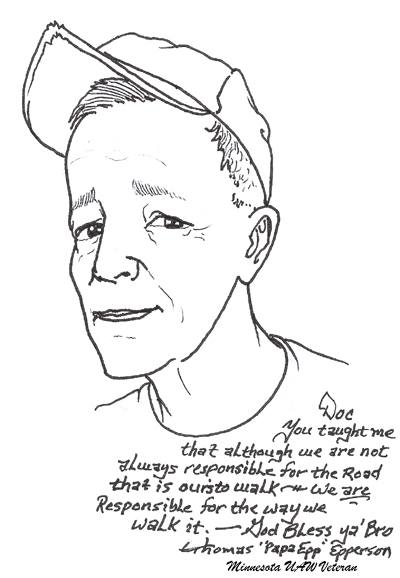 Doc
You taught me
that although we are not
always responsible for the Road
that is ours to walk — We are
Responsible for the way we
walk it. — God Bless ya' Bro
Thomas "Papa Epp" Epperson
Minnesota UAW Veteran